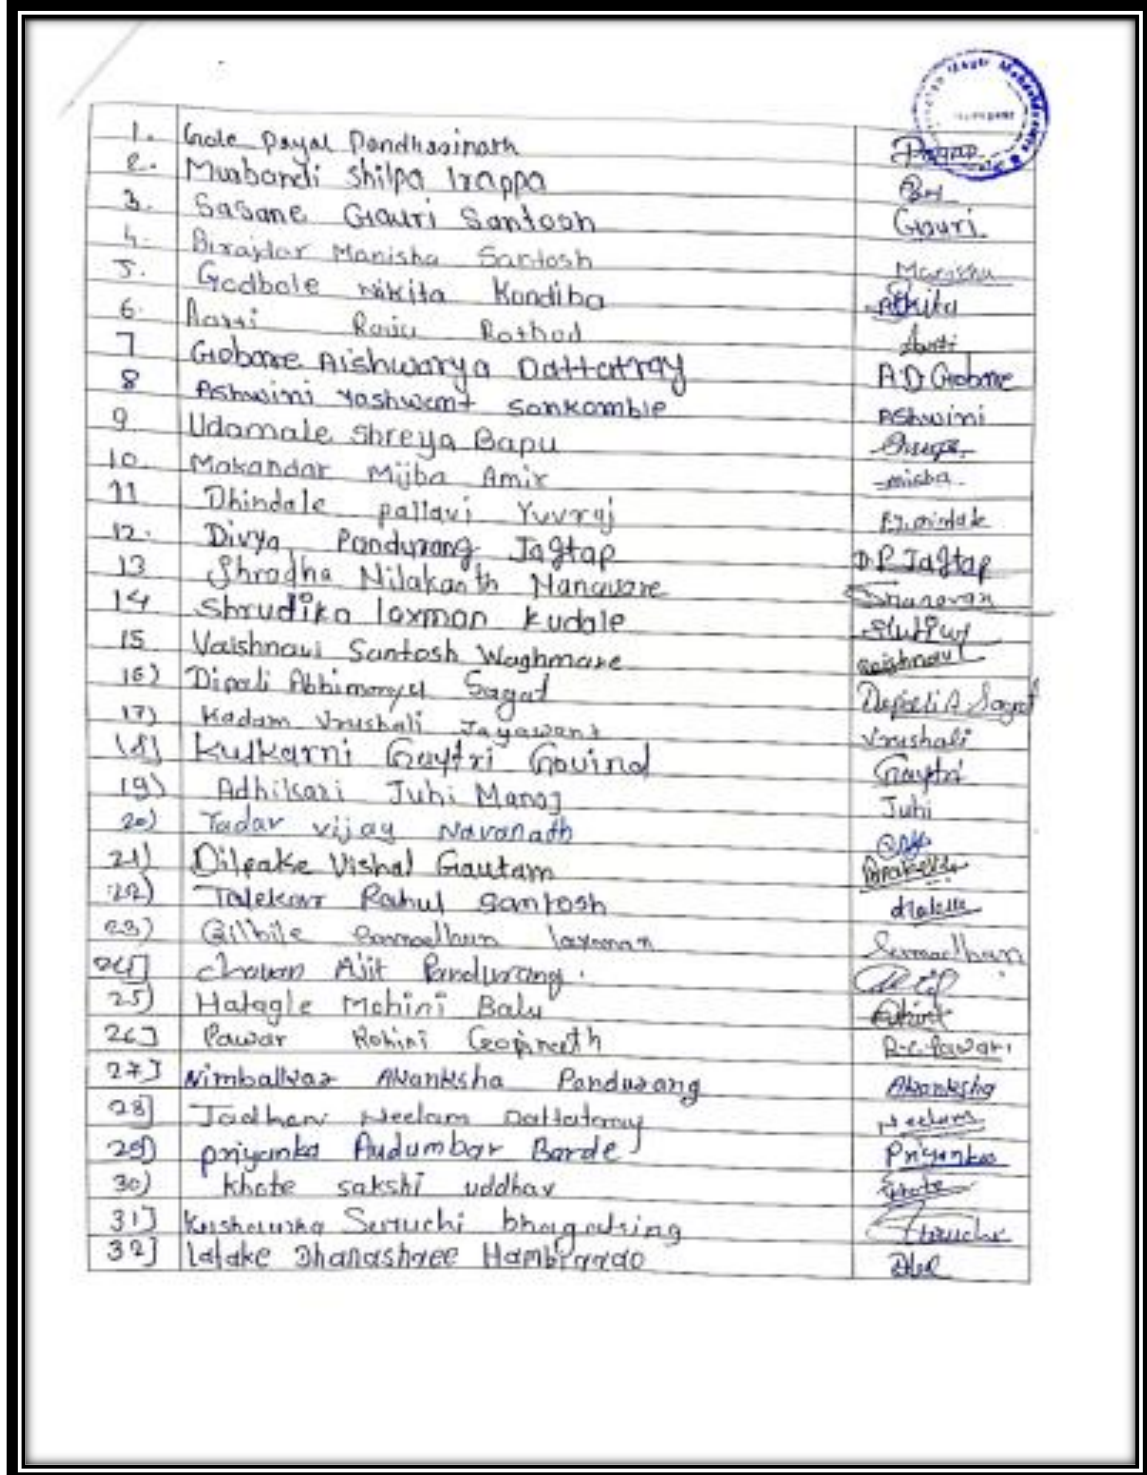 1. Gole Payal Pandharinath Payal
2. Murbandi Shilpa Irappa
3. Sasane Gauri Santosh Gauri
4. Birajdar Manisha Santosh Manisha
5. Godbole Nikita Kondiba Nikita
6. Raju Rathod
7 Gobare Aishwarya Dattatray A.D Gobare
8 Ashwini Yashwant Sonkamble Ashwini
9 Udamale Shreya Bapu
10. Makandar Mijba Amir misba
11 Dhindale pallavi Yuvraj
12. Divya Pandurang Jagtap D.P. Jagtap
13 Shradha Nilakanth Nanavare
14 Shrudika laxman kudale
15 Vaishnavi Santosh Waghmare Vaishnavi
16) Dipali Abhimanyu Sagat Depali A Sagat
17) Kadam Vrushali Jayawant Vrushali
18] Kulkarni Gaytri Govind Gaytri
19) Adhikari Juhi Manoj Juhi
20) Tadar vijay Navanath
21) Dilpake Vishal Gautam
22) Talekar Rahul Santosh
23) laxman
24] chavan Ajit Pandurang.
25) Hatagle Mohini Balu
26] Pawar Rohini Gopinath
27] Nimbalkar Akanksha Pandurang Akanksha
28] Jadhav Neelam Dattatray Neelam
29) priyanka Audumbar Barde Priyanka
30) khote sakshi uddhav
31] Suruchi bhagatsing
32] Lalake Dhanashree Hambirrao